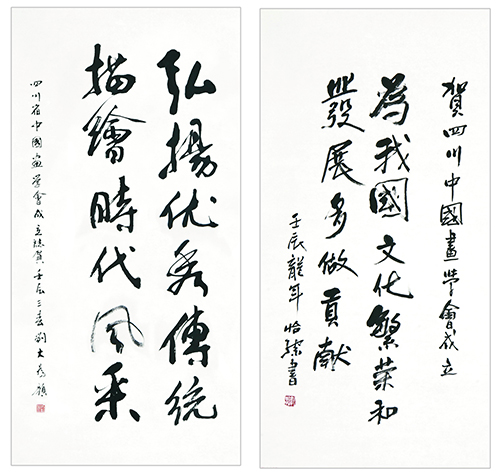 弘揚优秀傳統
描繪時代风采
四川省中國画学會成立誌賀壬辰三春劉大為題
賀四川中國畫学會成立
為我國文化繁荣和
發展多做貢献
壬辰龍年怡孮書